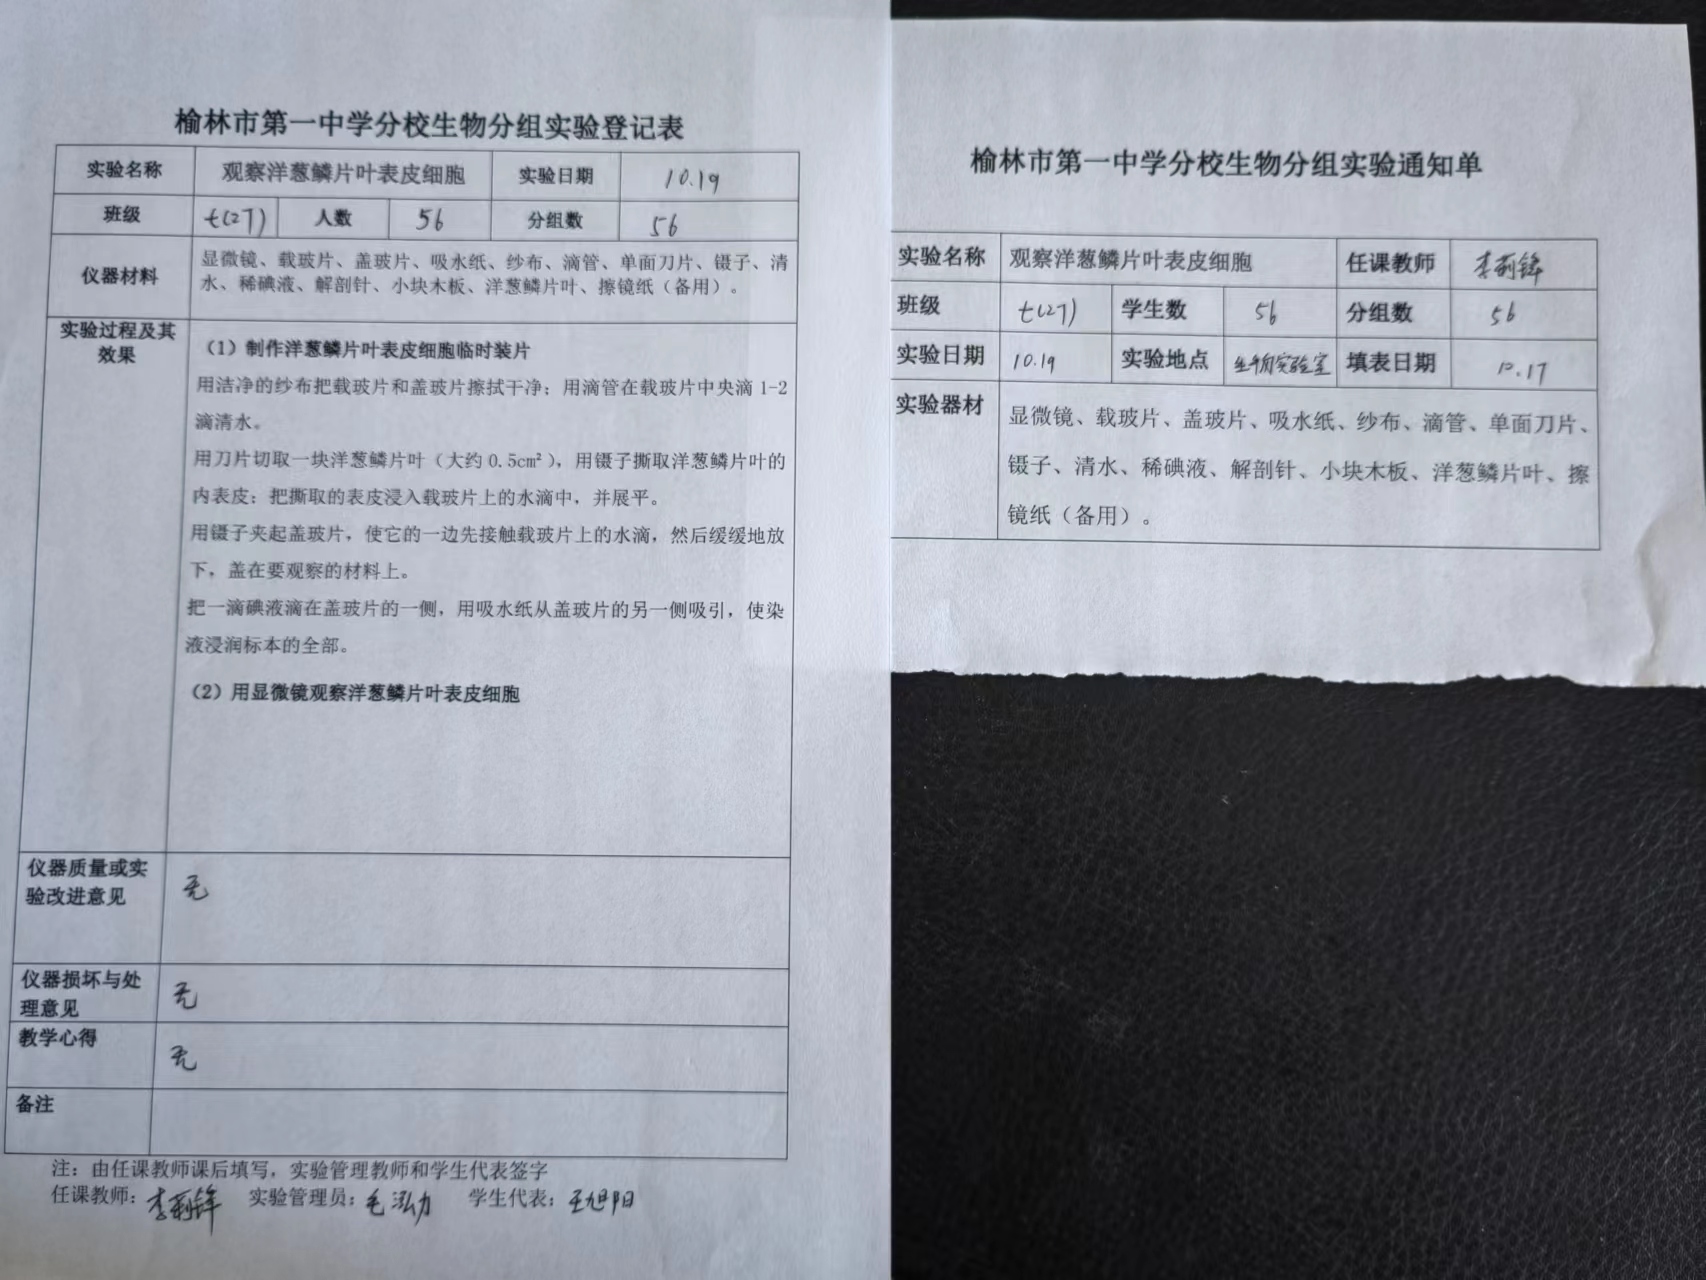 榆林市第一中学分校生物分组实验登记表
实验名称 观察洋葱鳞片叶表皮细胞 实验日期 10.19
班级 七(27) 人数 56 分组数 56
仪器材料
显微镜、载玻片、盖玻片、吸水纸、纱布、滴管、单面刀片、镊子、清
水、稀碘液、解剖针、小块木板、洋葱鳞片叶、擦镜纸（备用）。
实验过程及其
效果
（1）制作洋葱鳞片叶表皮细胞临时装片
用洁净的纱布把载玻片和盖玻片擦拭干净；用滴管在载玻片中央滴 1-2
滴清水。
用刀片切取一块洋葱鳞片叶（大约 0.5cm²），用镊子撕取洋葱鳞片叶的
内表皮；把撕取的表皮浸入载玻片上的水滴中，并展平。
用镊子夹起盖玻片，使它的一边先接触载玻片上的水滴，然后缓缓地放
下，盖在要观察的材料上。
把一滴碘液滴在盖玻片的一侧，用吸水纸从盖玻片的另一侧吸引，使染
液浸润标本的全部。
（2）用显微镜观察洋葱鳞片叶表皮细胞
仪器质量或实
验改进意见
无
仪器损坏与处
理意见
无
教学心得
无
备注
注：由任课教师课后填写，实验管理教师和学生代表签字
任课教师：李莉锋 实验管理员：毛泓力 学生代表：王旭阳
榆林市第一中学分校生物分组实验通知单
实验名称 观察洋葱鳞片叶表皮细胞 任课教师 李莉锋
班级 七(27) 学生数 56 分组数 56
实验日期 10.19 实验地点 生物实验室 填表日期 10.17
实验器材
显微镜、载玻片、盖玻片、吸水纸、纱布、滴管、单面刀片、
镊子、清水、稀碘液、解剖针、小块木板、洋葱鳞片叶、擦
镜纸（备用）。